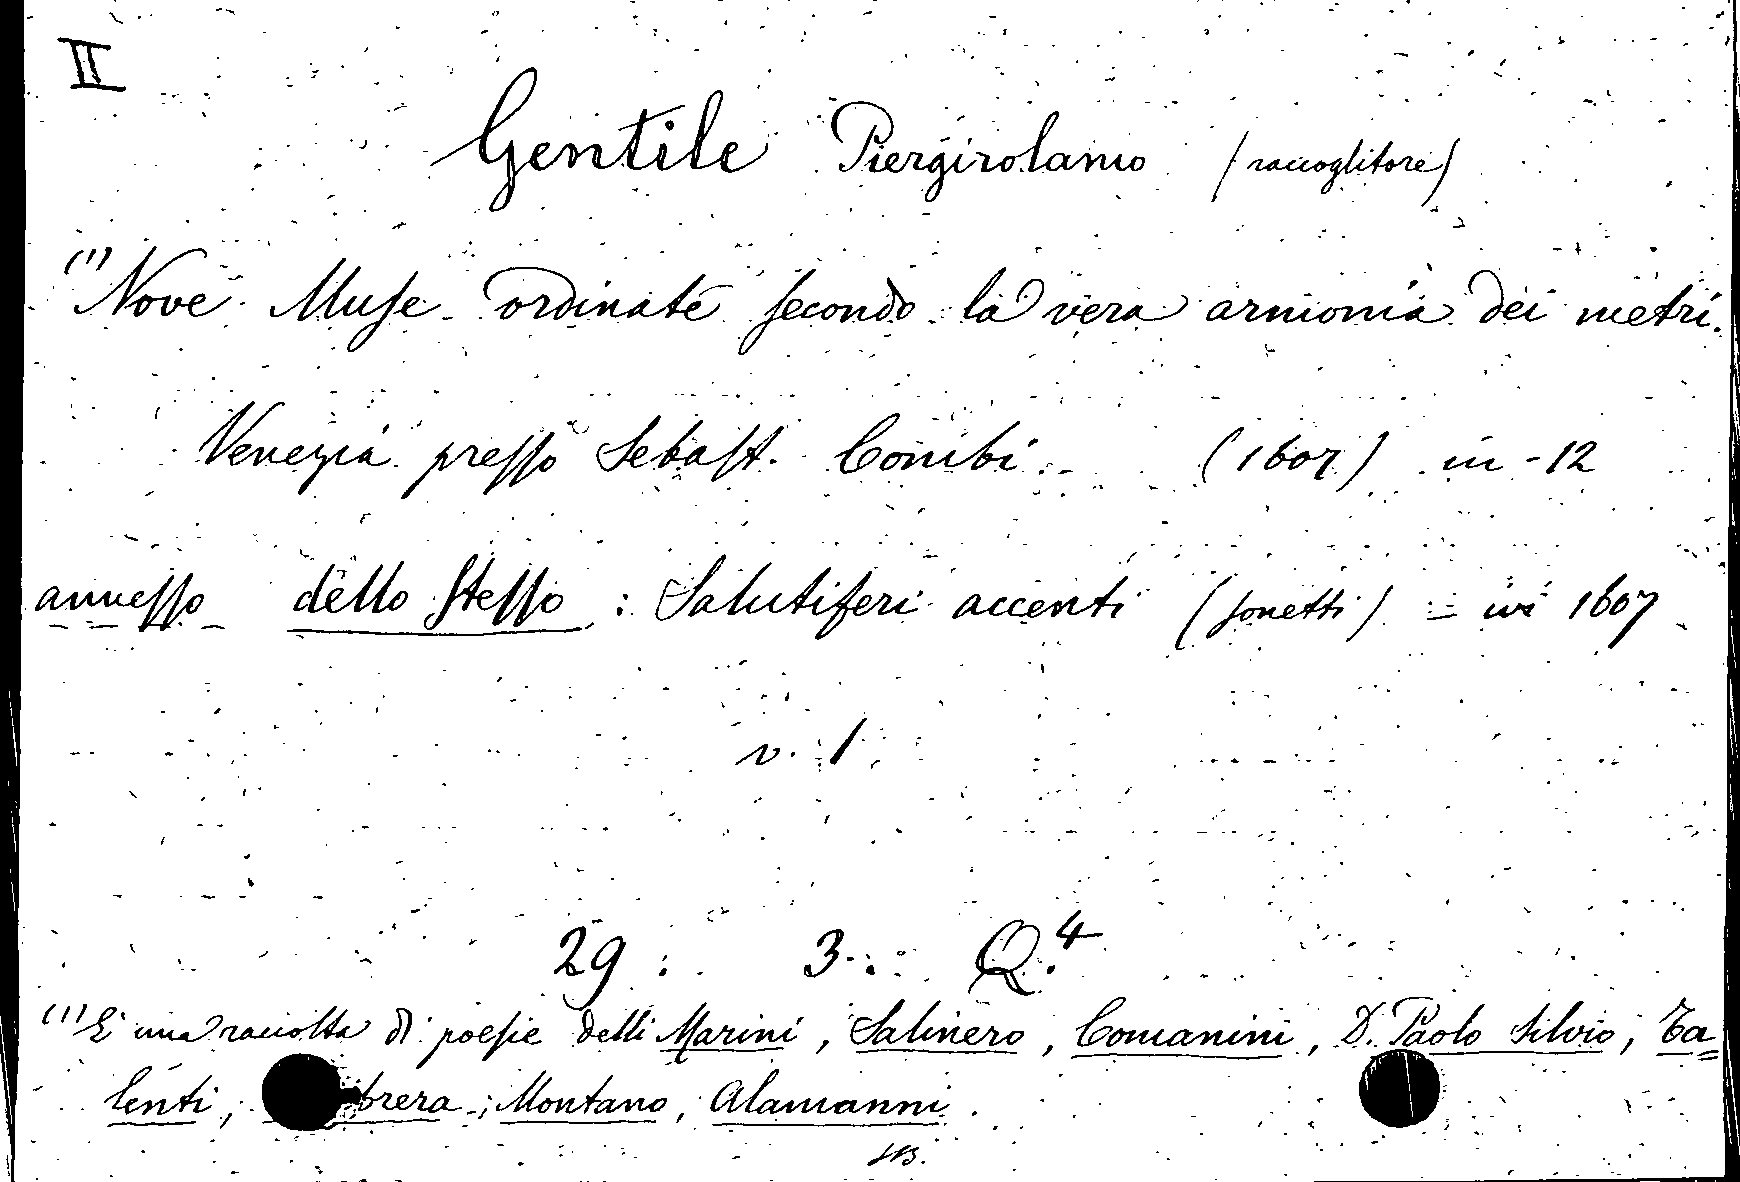 II
Gentile Piergirolamo (raccoglitore)
(1) Nove Muse ordinate secondo la vera armonia dei metri.
Venezia presso Sebast. Combi. (1607) in-12
annesso dello stesso : Salutiferi accenti (sonetti) = ivi 1607
v. 1
29. 3. Q.4
(1) È una raccolta di poesie delli Marini, Salinero, Comanini, D. Paolo Silvio, Ta=
lenti, brera, Montano, Alamanni.